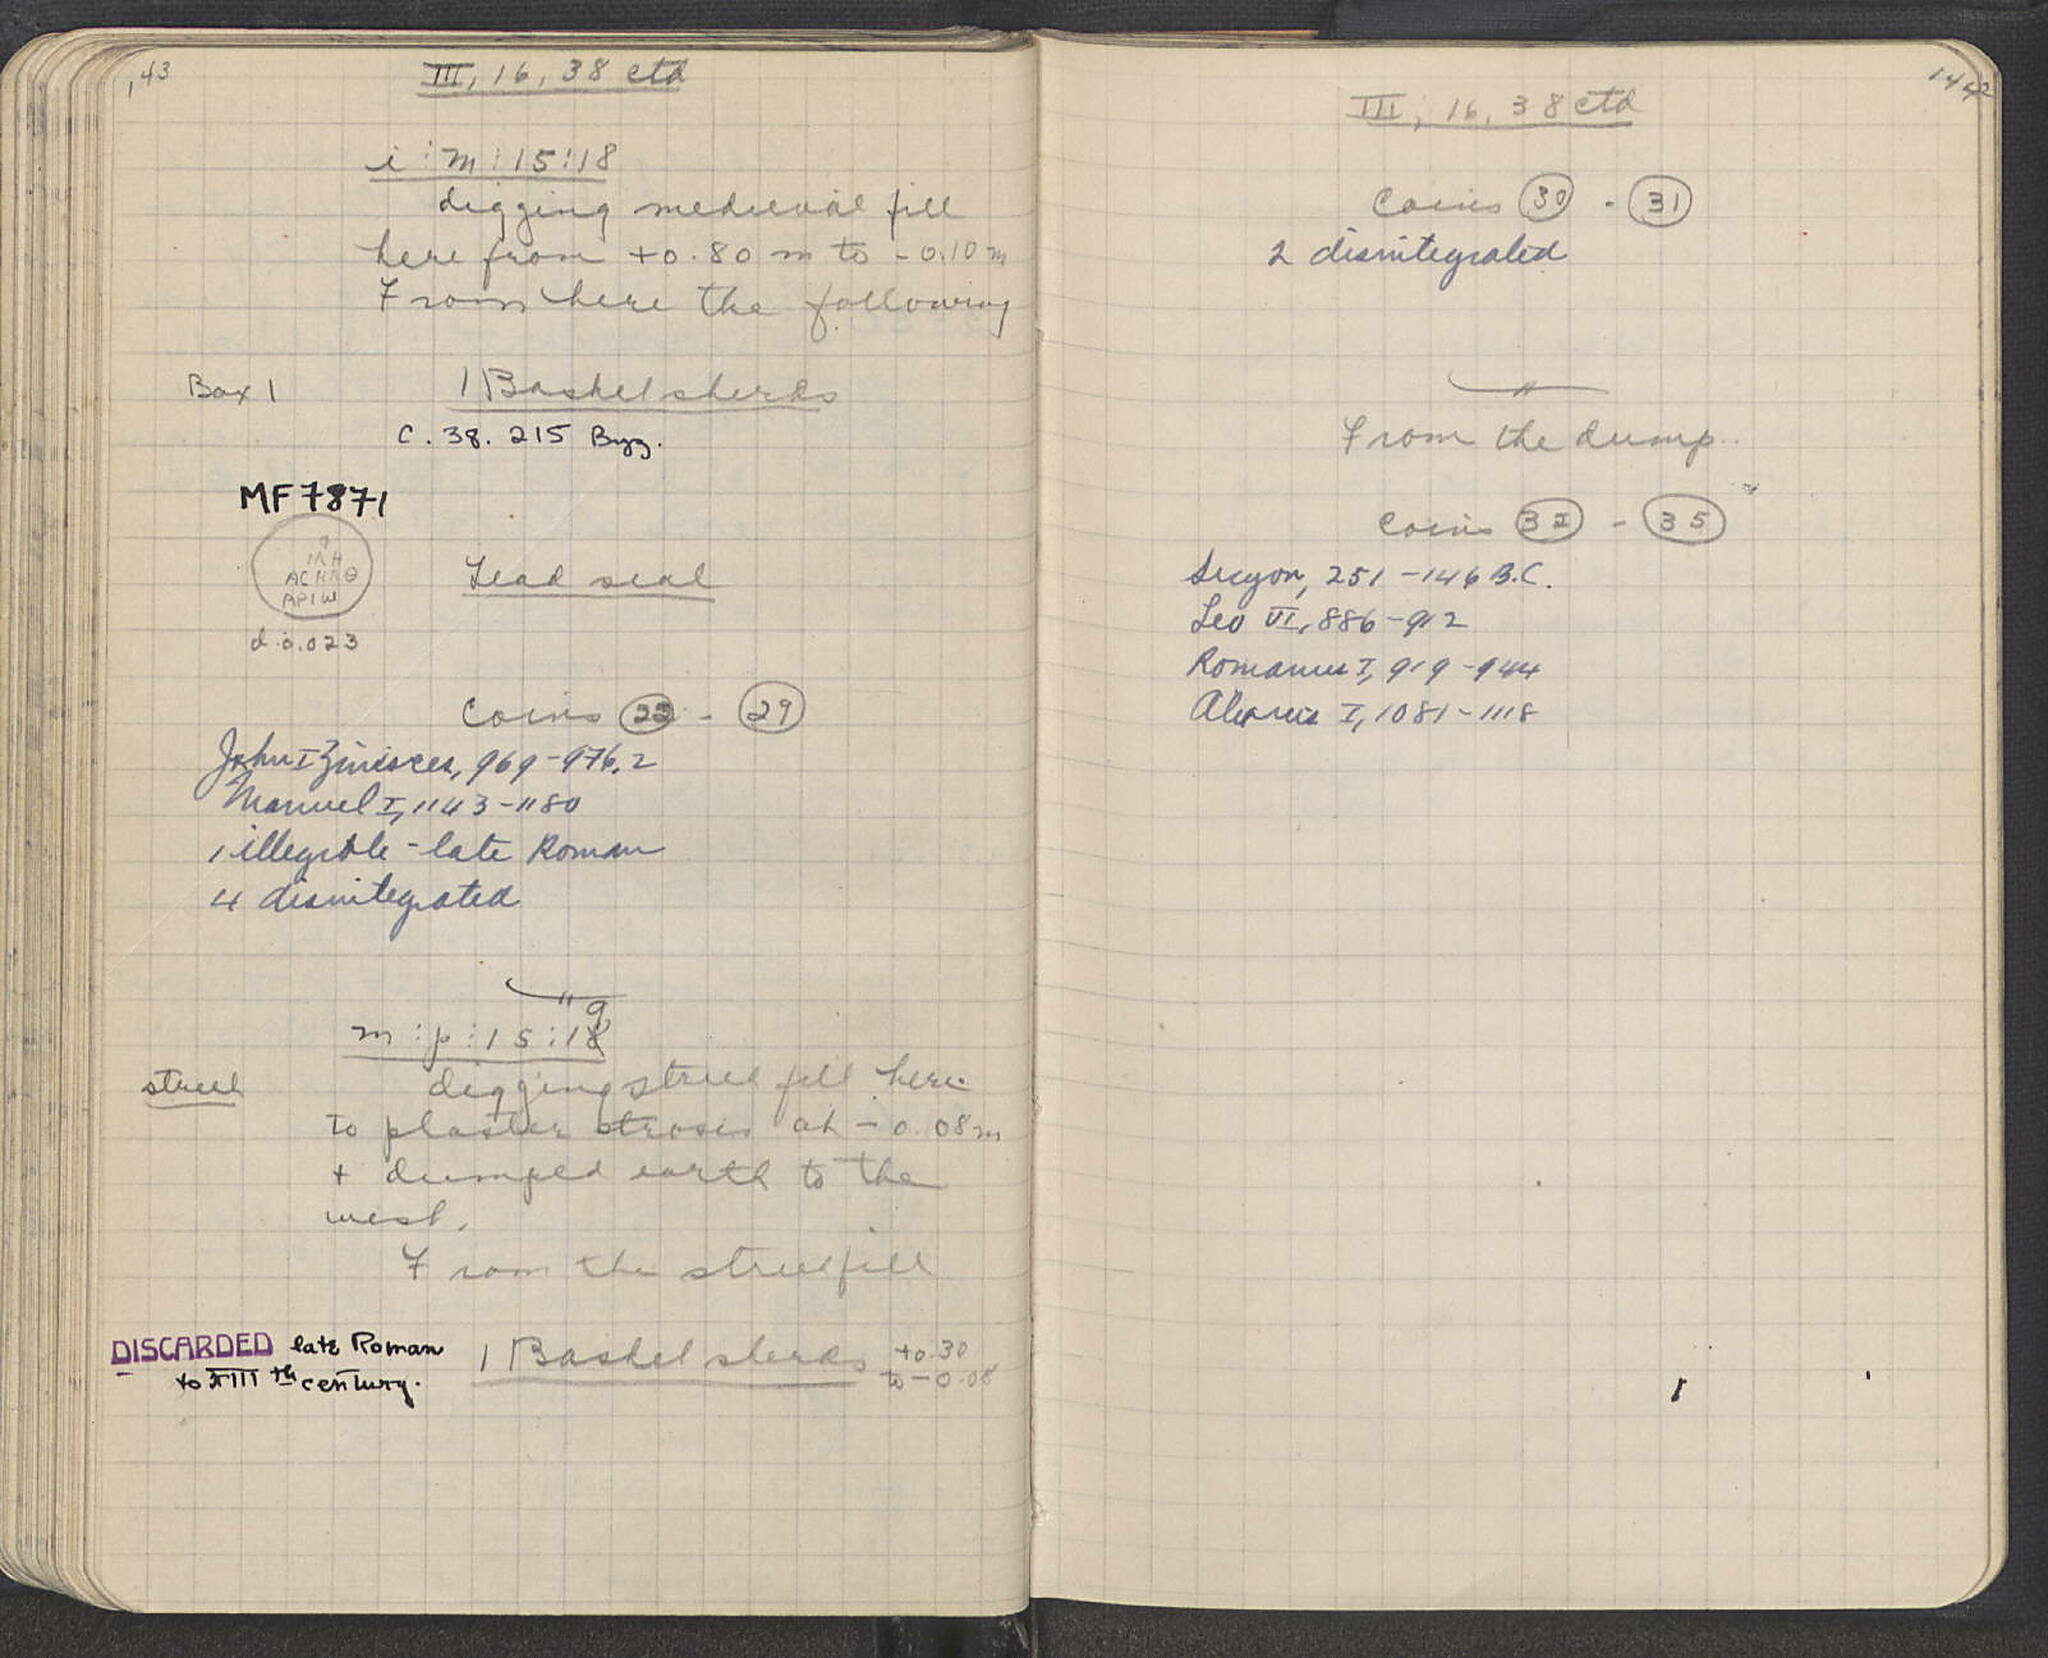 143
III, 16, 38 ctd
i:m:15:18
digging medieval fill
here from +0.80 m to -0.10 m
From here the following
Box 1
1 Basket sherds
C. 38. 215 Byz.
MF 7871
MH
APIW
Lead seal
d. 0.023
Coins 22 - 29
John I Zimisces, 969-976. 2
Manuel I, 1143-1180
1 illegible - late Roman
4 disintegrated
"
9
m:p:15:18
street
digging street fill here
to plaster strosis at -0.08 m
+ dumped earth to the
west.
From the street fill
DISCARDED late Roman
to XIII th century.
1 Basket sherds +0.30
to -0.08
144
III, 16, 38 ctd
Coins 30 - 31
2 disintegrated
"
From the dump
Coins 32 - 35
Sicyon, 251-146 B.C.
Leo VI, 886-912
Romanus I, 919-944
Alexius I, 1081-1118